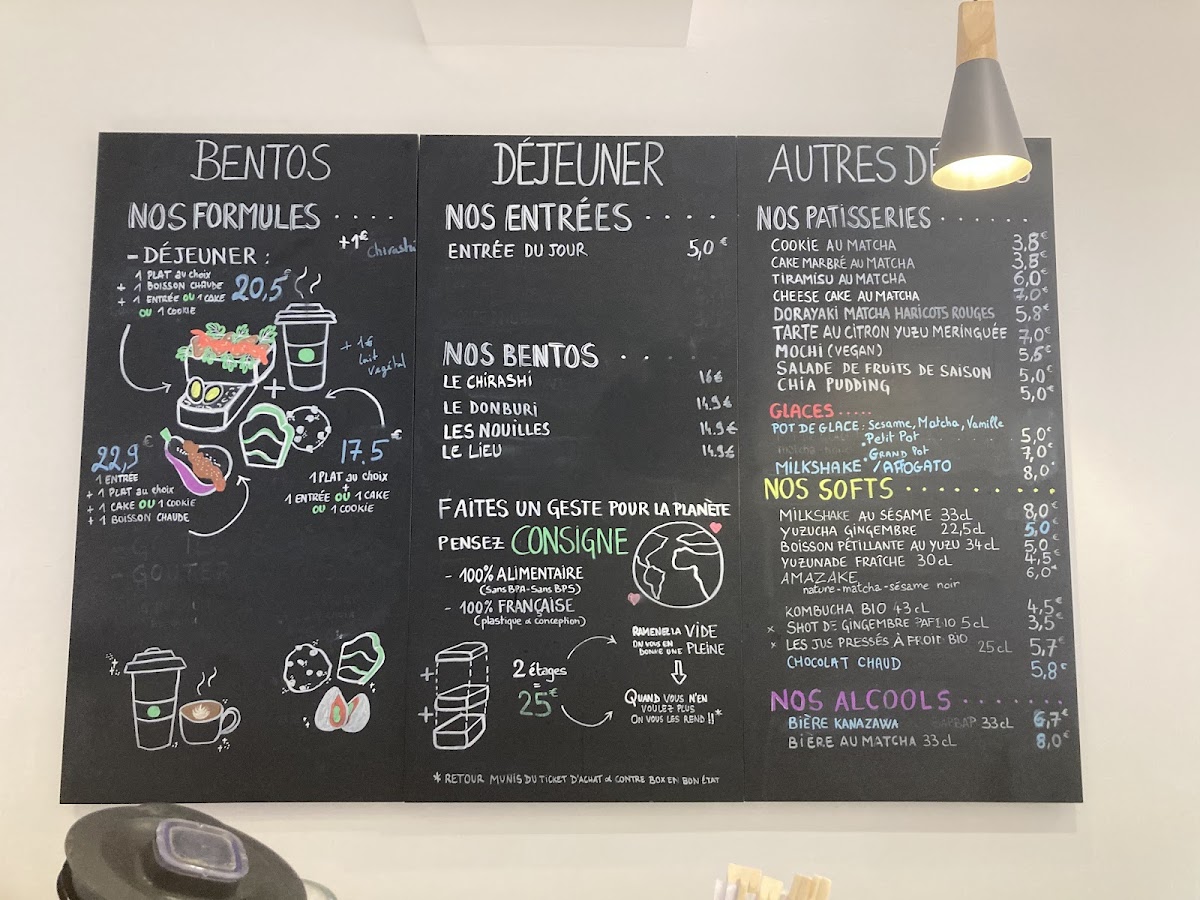 BENTOS
NOS FORMULES ....
+1€ Chirashi
- DÉJEUNER :
1 PLAT au choix
+ 1 BOISSON CHAUDE
+ 1 ENTRÉE OU 1 CAKE
OU 1 COOKIE
20,5€
+ 1€
lait
végétal
22,9€
1 ENTRÉE
+ 1 PLAT au choix
+ 1 CAKE OU 1 COOKIE
+ 1 BOISSON CHAUDE
17.5€
1 PLAT au choix
+
1 ENTRÉE OU 1 CAKE
OU 1 COOKIE
- GOÛTER
DÉJEUNER
NOS ENTRÉES ....
ENTRÉE DU JOUR 5,0€
NOS BENTOS .....
LE CHIRASHI 16€
LE DONBURI 14.9€
LES NOUILLES 14.9€
LE LIEU 14.9€
FAITES UN GESTE POUR LA PLANÈTE
PENSEZ CONSIGNE
- 100% ALIMENTAIRE
(Sans BPA-Sans BPS)
- 100% FRANÇAISE
(plastique & conception)
2 étages
=
25€
RAMENEZ LA VIDE
ON VOUS EN
DONNE UNE PLEINE
QUAND VOUS N'EN
VOULEZ PLUS
ON VOUS LES REND !!*
* RETOUR MUNIS DU TICKET D'ACHAT & CONTRE BOX EN BON ÉTAT
AUTRES
NOS PATISSERIES ......
COOKIE AU MATCHA 3,8€
CAKE MARBRÉ AU MATCHA 3,8€
TIRAMISU AU MATCHA 6,0€
CHEESE CAKE AU MATCHA 7,0€
DORAYAKI MATCHA HARICOTS ROUGES 5,8€
TARTE AU CITRON YUZU MERINGUÉE 7,0€
MOCHI (VEGAN) 5,5€
SALADE DE FRUITS DE SAISON 5,0€
CHIA PUDDING 5,0€
GLACES .....
POT DE GLACE : Sesame, Matcha, Vanille
. Petit Pot 5,0€
. GRAND Pot 7,0€
MILKSHAKE / AFFOGATO 8,0€
NOS SOFTS ........
MILKSHAKE AU SÉSAME 33cL 8,0€
YUZUCHA GINGEMBRE 22,5cL 5,0
BOISSON PÉTILLANTE AU YUZU 34cL 5,0
YUZUNADE FRAÎCHE 30cL 4,5€
AMAZAKE 6,0€
nature-matcha-sésame noir
KOMBUCHA BIO 43cL 4,5€
x SHOT DE GINGEMBRE 5cL 3,5€
x LES JUS PRESSÉS À FROIT BIO 25cL 5,7€
CHOCOLAT CHAUD 5,8€
NOS ALCOOLS ......
BIÈRE KANAZAWA 33cL 6,7€
BIÈRE AU MATCHA 33cL 8,0€